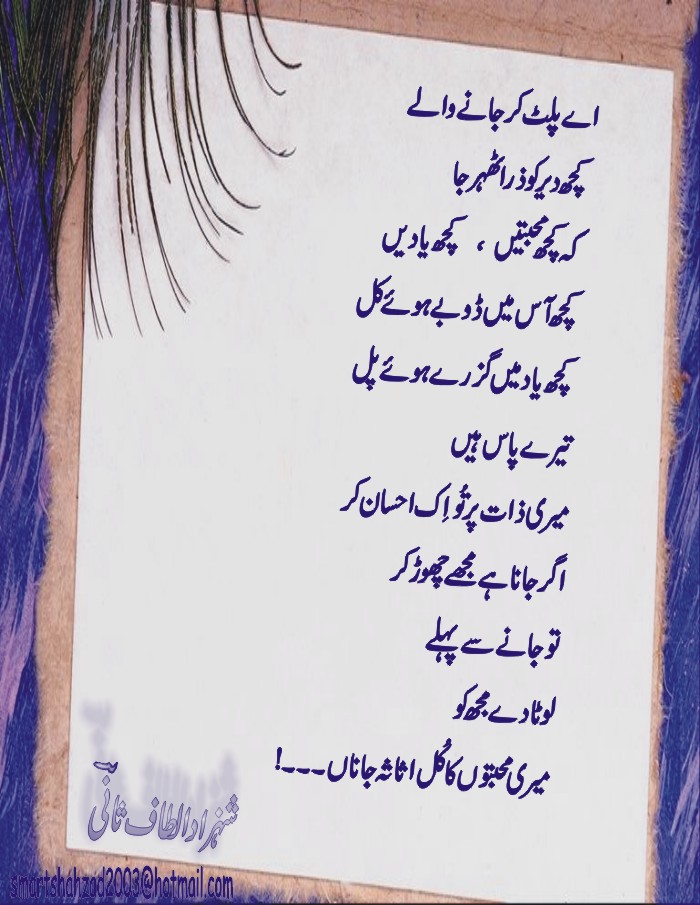 اے پلٹ کر جانے والے
کچھ دیر کو ذرا ٹھہر جا
کہ کچھ محبتیں ، کچھ یادیں
کچھ آس میں ڈوبے ہوئے کل
کچھ یاد میں گزرے ہوئے پل
تیرے پاس ہیں
میری ذات پر تُو اِک احسان کر
اگر جانا ہے مجھے چھوڑ کر
تو جانے سے پہلے
لوٹا دے مجھ کو
میری محبتوں کا کُل اثاثہ جاناں ۔۔۔!
شہزاد الطاف ثانی
smartshahzad2003@hotmail.com